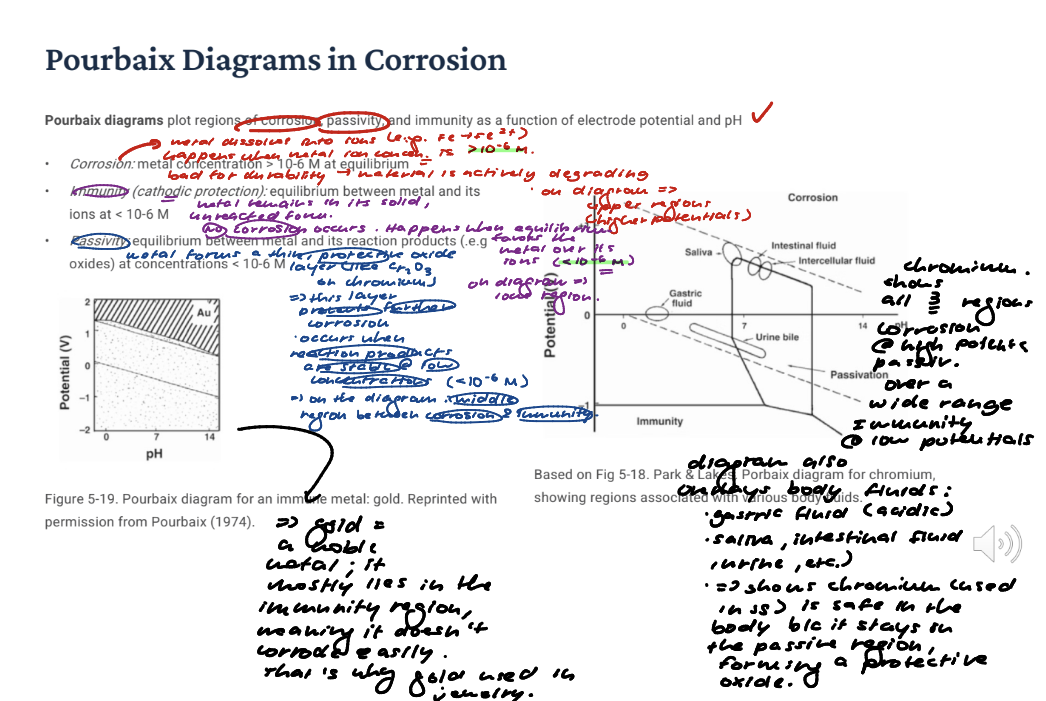 Pourbaix Diagrams in Corrosion
Pourbaix diagrams plot regions of corrosion, passivity, and immunity as a function of electrode potential and pH
metal dissolves into ions (e.g. Fe → Fe²⁺)
happens when metal ion concen. is >10⁻⁶ M.
• Corrosion: metal concentration > 10-6 M at equilibrium
bad for durability → material is actively degrading
• on diagram =>
upper regions
(higher potentials)
• Immunity (cathodic protection): equilibrium between metal and its
ions at < 10-6 M
metal remains in its solid,
unreacted form.
No corrosion occurs. Happens when equilibrium
favors the
metal over its
ions (<10⁻⁶ M)
on diagram =>
lower region.
• Passivity: equilibrium between metal and its reaction products (.e.g
oxides) at concentrations < 10-6 M
metal forms a thin, protective oxide
layer (like Cr₂O₃
on chromium)
=> this layer
protects further
corrosion
• occurs when
reaction products
are stable @ low
concentrations (<10⁻⁶ M)
=> on the diagram: middle
region between corrosion & immunity.
Potential (V)
2
1
0
−1
−2
Au
0 7 14
pH
Figure 5-19. Pourbaix diagram for an immune metal: gold. Reprinted with
permission from Pourbaix (1974).
=> gold =
a noble
metal; it
mostly lies in the
immunity region,
meaning it doesn't
corrode easily.
That's why gold used in
jewelry.
Corrosion
Saliva
Intestinal fluid
Intercellular fluid
Gastric
fluid
Potential (V)
0
0 7 14
pH
Urine bile
Passivation
Immunity
chromium.
shows
all 3 regions
corrosion
@ high potentials
passiv.
over a
wide range
Immunity
@ low potentials
Based on Fig 5-18. Park & Lakes, Porbaix diagram for chromium,
showing regions associated with various body fluids.
diagram also
overlays body fluids:
• gastric fluid (acidic)
• saliva, intestinal fluid
(urine, etc.)
• => shows chromium (used
in SS) is safe in the
body b/c it stays in
the passive region,
forming a protective
oxide.